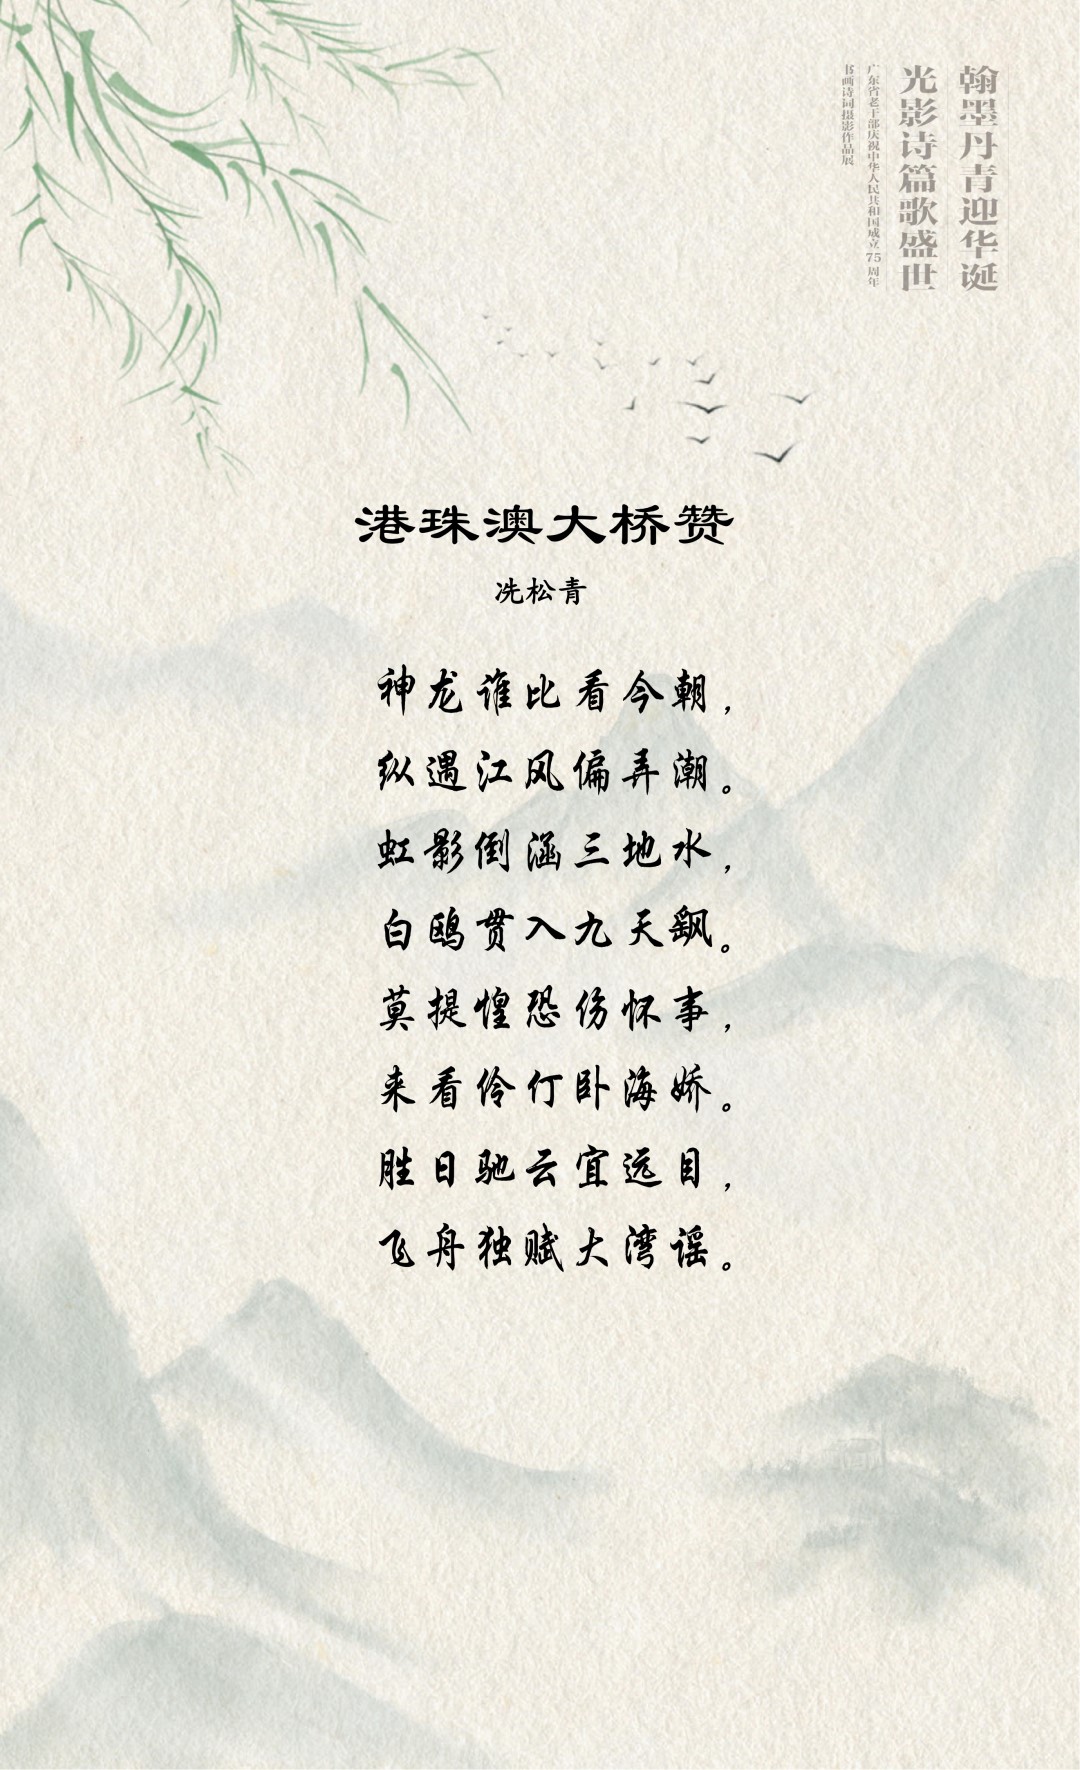 翰墨丹青迎华诞
光影诗篇歌盛世
广东省老干部庆祝中华人民共和国成立75周年
书画诗词摄影作品展
港珠澳大桥赞
冼松青
神龙谁比看今朝，
纵遇江风偏弄潮。
虹影倒涵三地水，
白鸥贯入九天飘。
莫提惶恐伤怀事，
来看伶仃卧海娇。
胜日驰云宜远目，
飞舟独赋大湾谣。